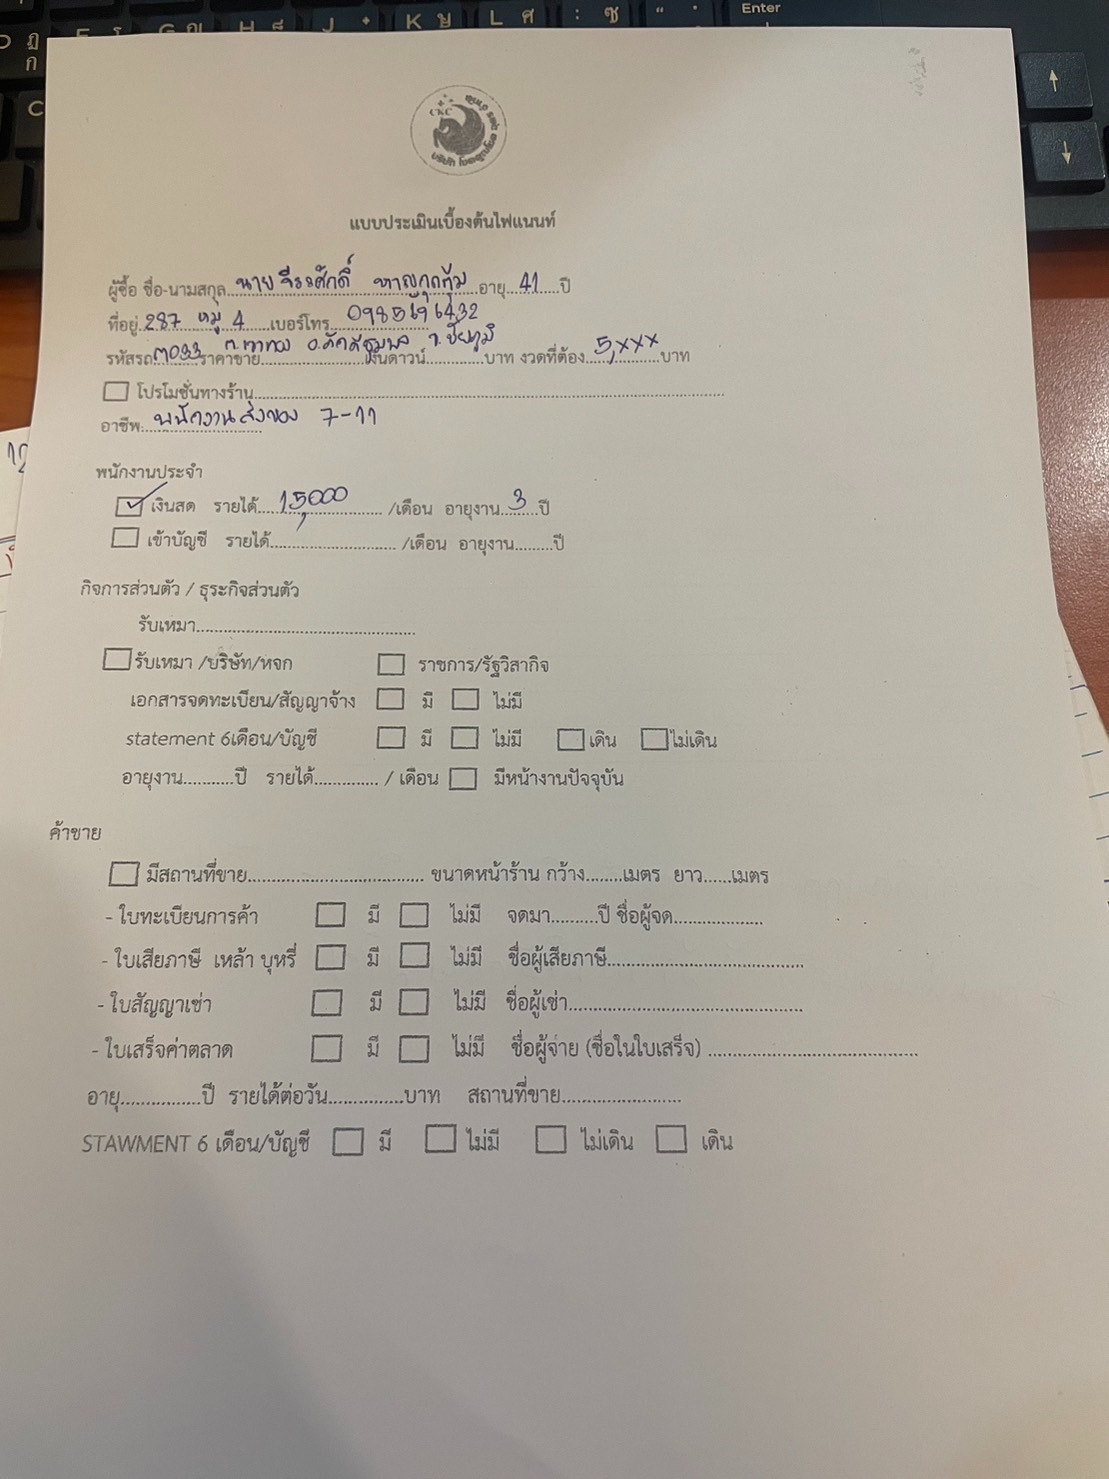 CKC
แบบประเมินเบื้องต้นไฟแนนท์
ผู้ซื้อ ชื่อ-นามสกุล นาย จีระศักดิ์ อายุ 41 ปี
ที่อยู่ 287 หมู่ 4 เบอร์โทร 0985696432
รหัสรถ 3033 ราคาขาย เงินดาวน์ บาท งวดที่ต้อง 5,xxx บาท
อ.ภักดีชุมพล จ.ชัยภูมิ
โปรโมชั่นทางร้าน
อาชีพ พนักงานส่งของ 7-11
พนักงานประจำ
เงินสด รายได้ 15,000 /เดือน อายุงาน 3 ปี
เข้าบัญชี รายได้ /เดือน อายุงาน ปี
กิจการส่วนตัว / ธุระกิจส่วนตัว
รับเหมา
รับเหมา /บริษัท/หจก ราชการ/รัฐวิสากิจ
เอกสารจดทะเบียน/สัญญาจ้าง มี ไม่มี
statement 6เดือน/บัญชี มี ไม่มี เดิน ไม่เดิน
อายุงาน ปี รายได้ / เดือน มีหน้างานปัจจุบัน
ค้าขาย
มีสถานที่ขาย ขนาดหน้าร้าน กว้าง เมตร ยาว เมตร
- ใบทะเบียนการค้า มี ไม่มี จดมา ปี ชื่อผู้จด
- ใบเสียภาษี เหล้า บุหรี่ มี ไม่มี ชื่อผู้เสียภาษี
- ใบสัญญาเช่า มี ไม่มี ชื่อผู้เช่า
- ใบเสร็จค่าตลาด มี ไม่มี ชื่อผู้จ่าย (ชื่อในใบเสร็จ)
อายุ ปี รายได้ต่อวัน บาท สถานที่ขาย
STAWMENT 6 เดือน/บัญชี มี ไม่มี ไม่เดิน เดิน